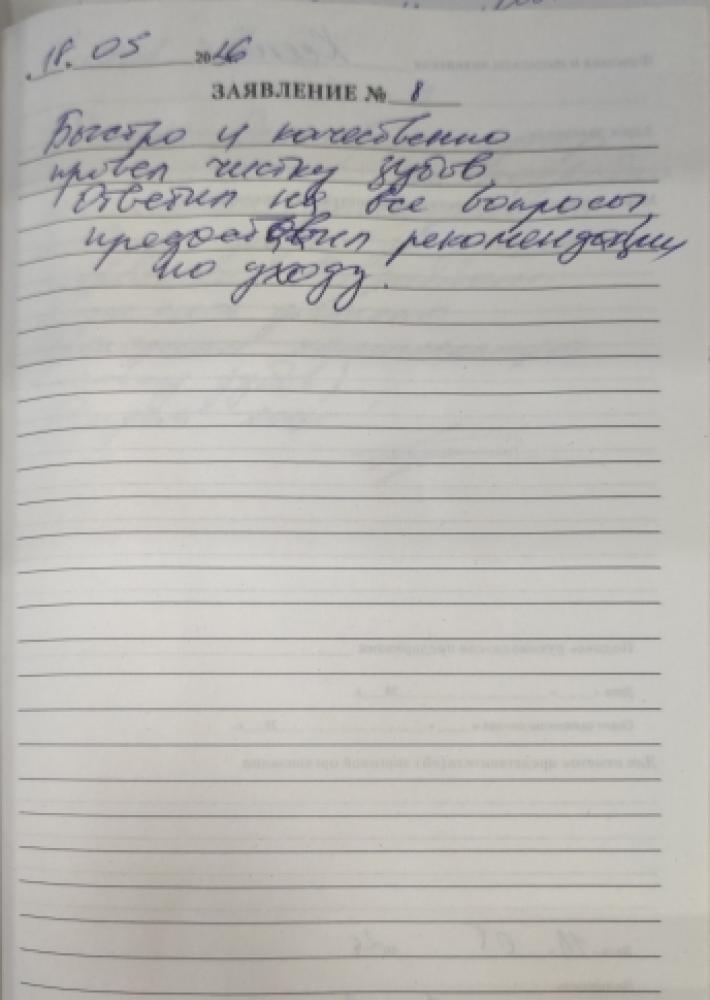 18. 05 2026
ЗАЯВЛЕНИЕ № 8
Быстро и качественно
провел чистку зубов.
Ответил на все вопросы,
предоставил рекомендации
по уходу.